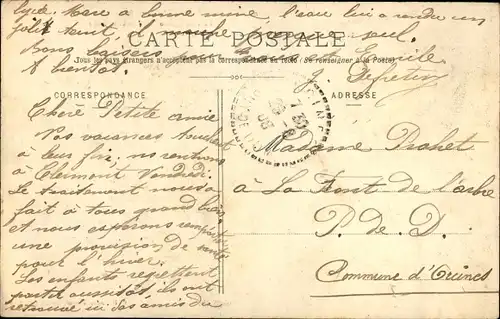 lycée. Meu a bonne mine, l'eau lui a rendu un
joli teint, il
Bons baisers
A bientôt. J. Emile
Defretin
CARTE POSTALE
Tous les pays étrangers n'acceptent pas la correspondance au recto (Se renseigner à la Poste)
CORRESPONDANCE
ADRESSE
Chère Petite amie
Vos vacances touchent
à leur fin, nous rentrons
à Clermont Vendredi.
Le traitement nous a
fait à tous grand bien
et nous espérons
une provision de santé
pour l'hiver.
Les enfants regrettent
partir aussitôt, ils ont
retrouvé ici des amis du
Madame Prohet
à La Font de l'arbre
P. de D.
Commune d'Orcines